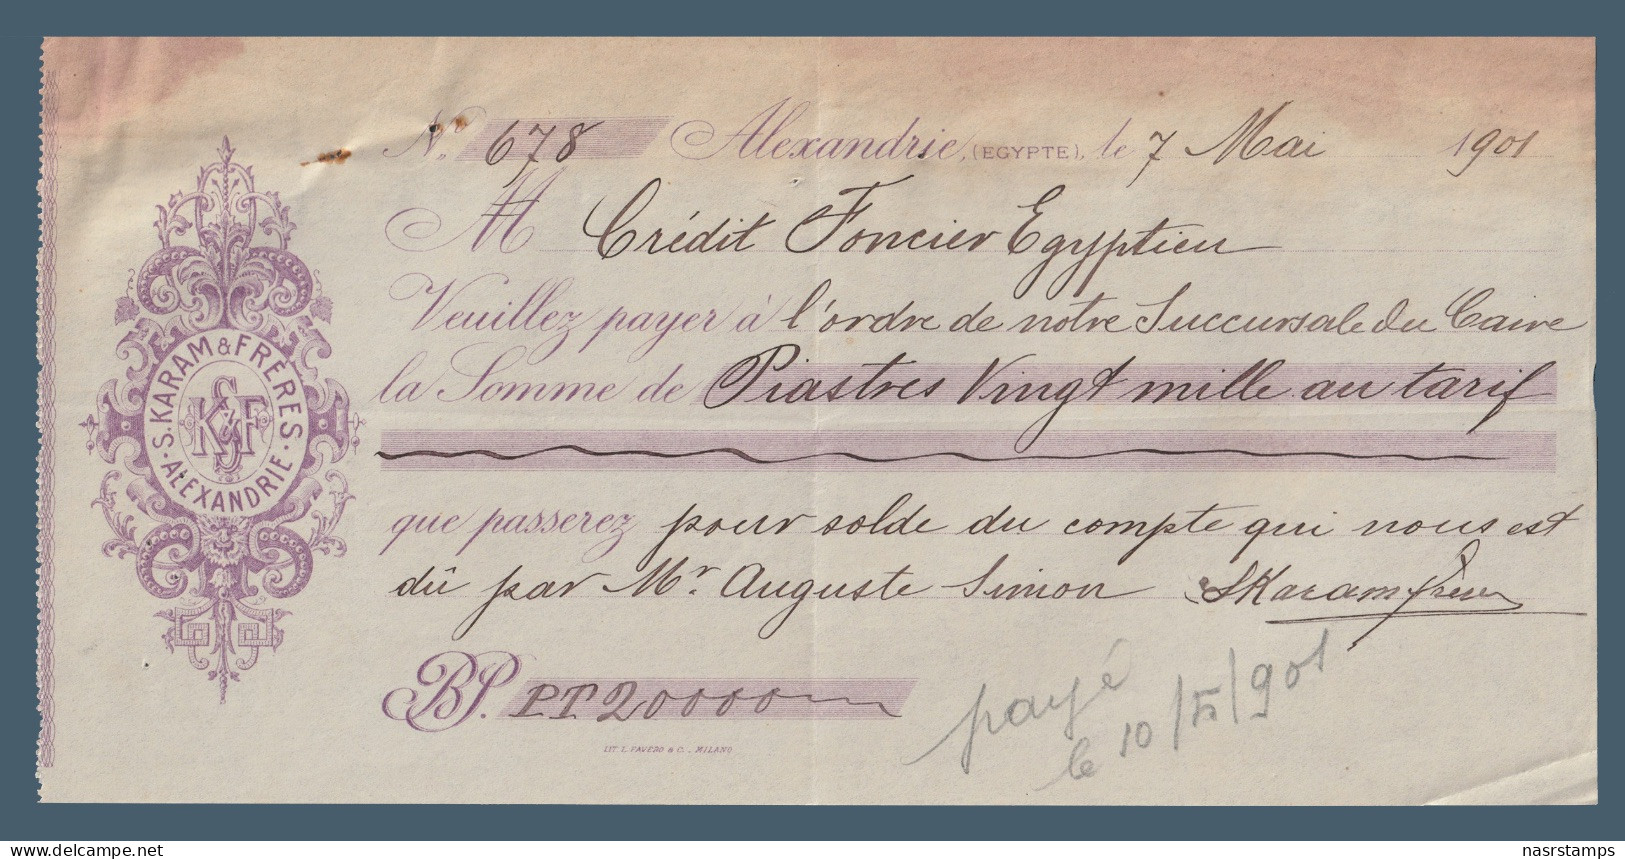 Nº 678 Alexandrie, (EGYPTE), le 7 Mai 1901
M Crédit Foncier Egyptien
Veuillez payer à l'ordre de notre Succursale du Caire
la Somme de Piastres Vingt mille au tarif
que passerez pour solde du compte qui nous est
dû par Mr. Auguste Simon SKaram frères
BP. P.T. 20000
payé
le 10/V/901
LIT. L. FAVERO & C. - MILANO
S. KARAM & FRÈRES.
SKF
· ALEXANDRIE ·
www.delcampe.net
nasrstamps